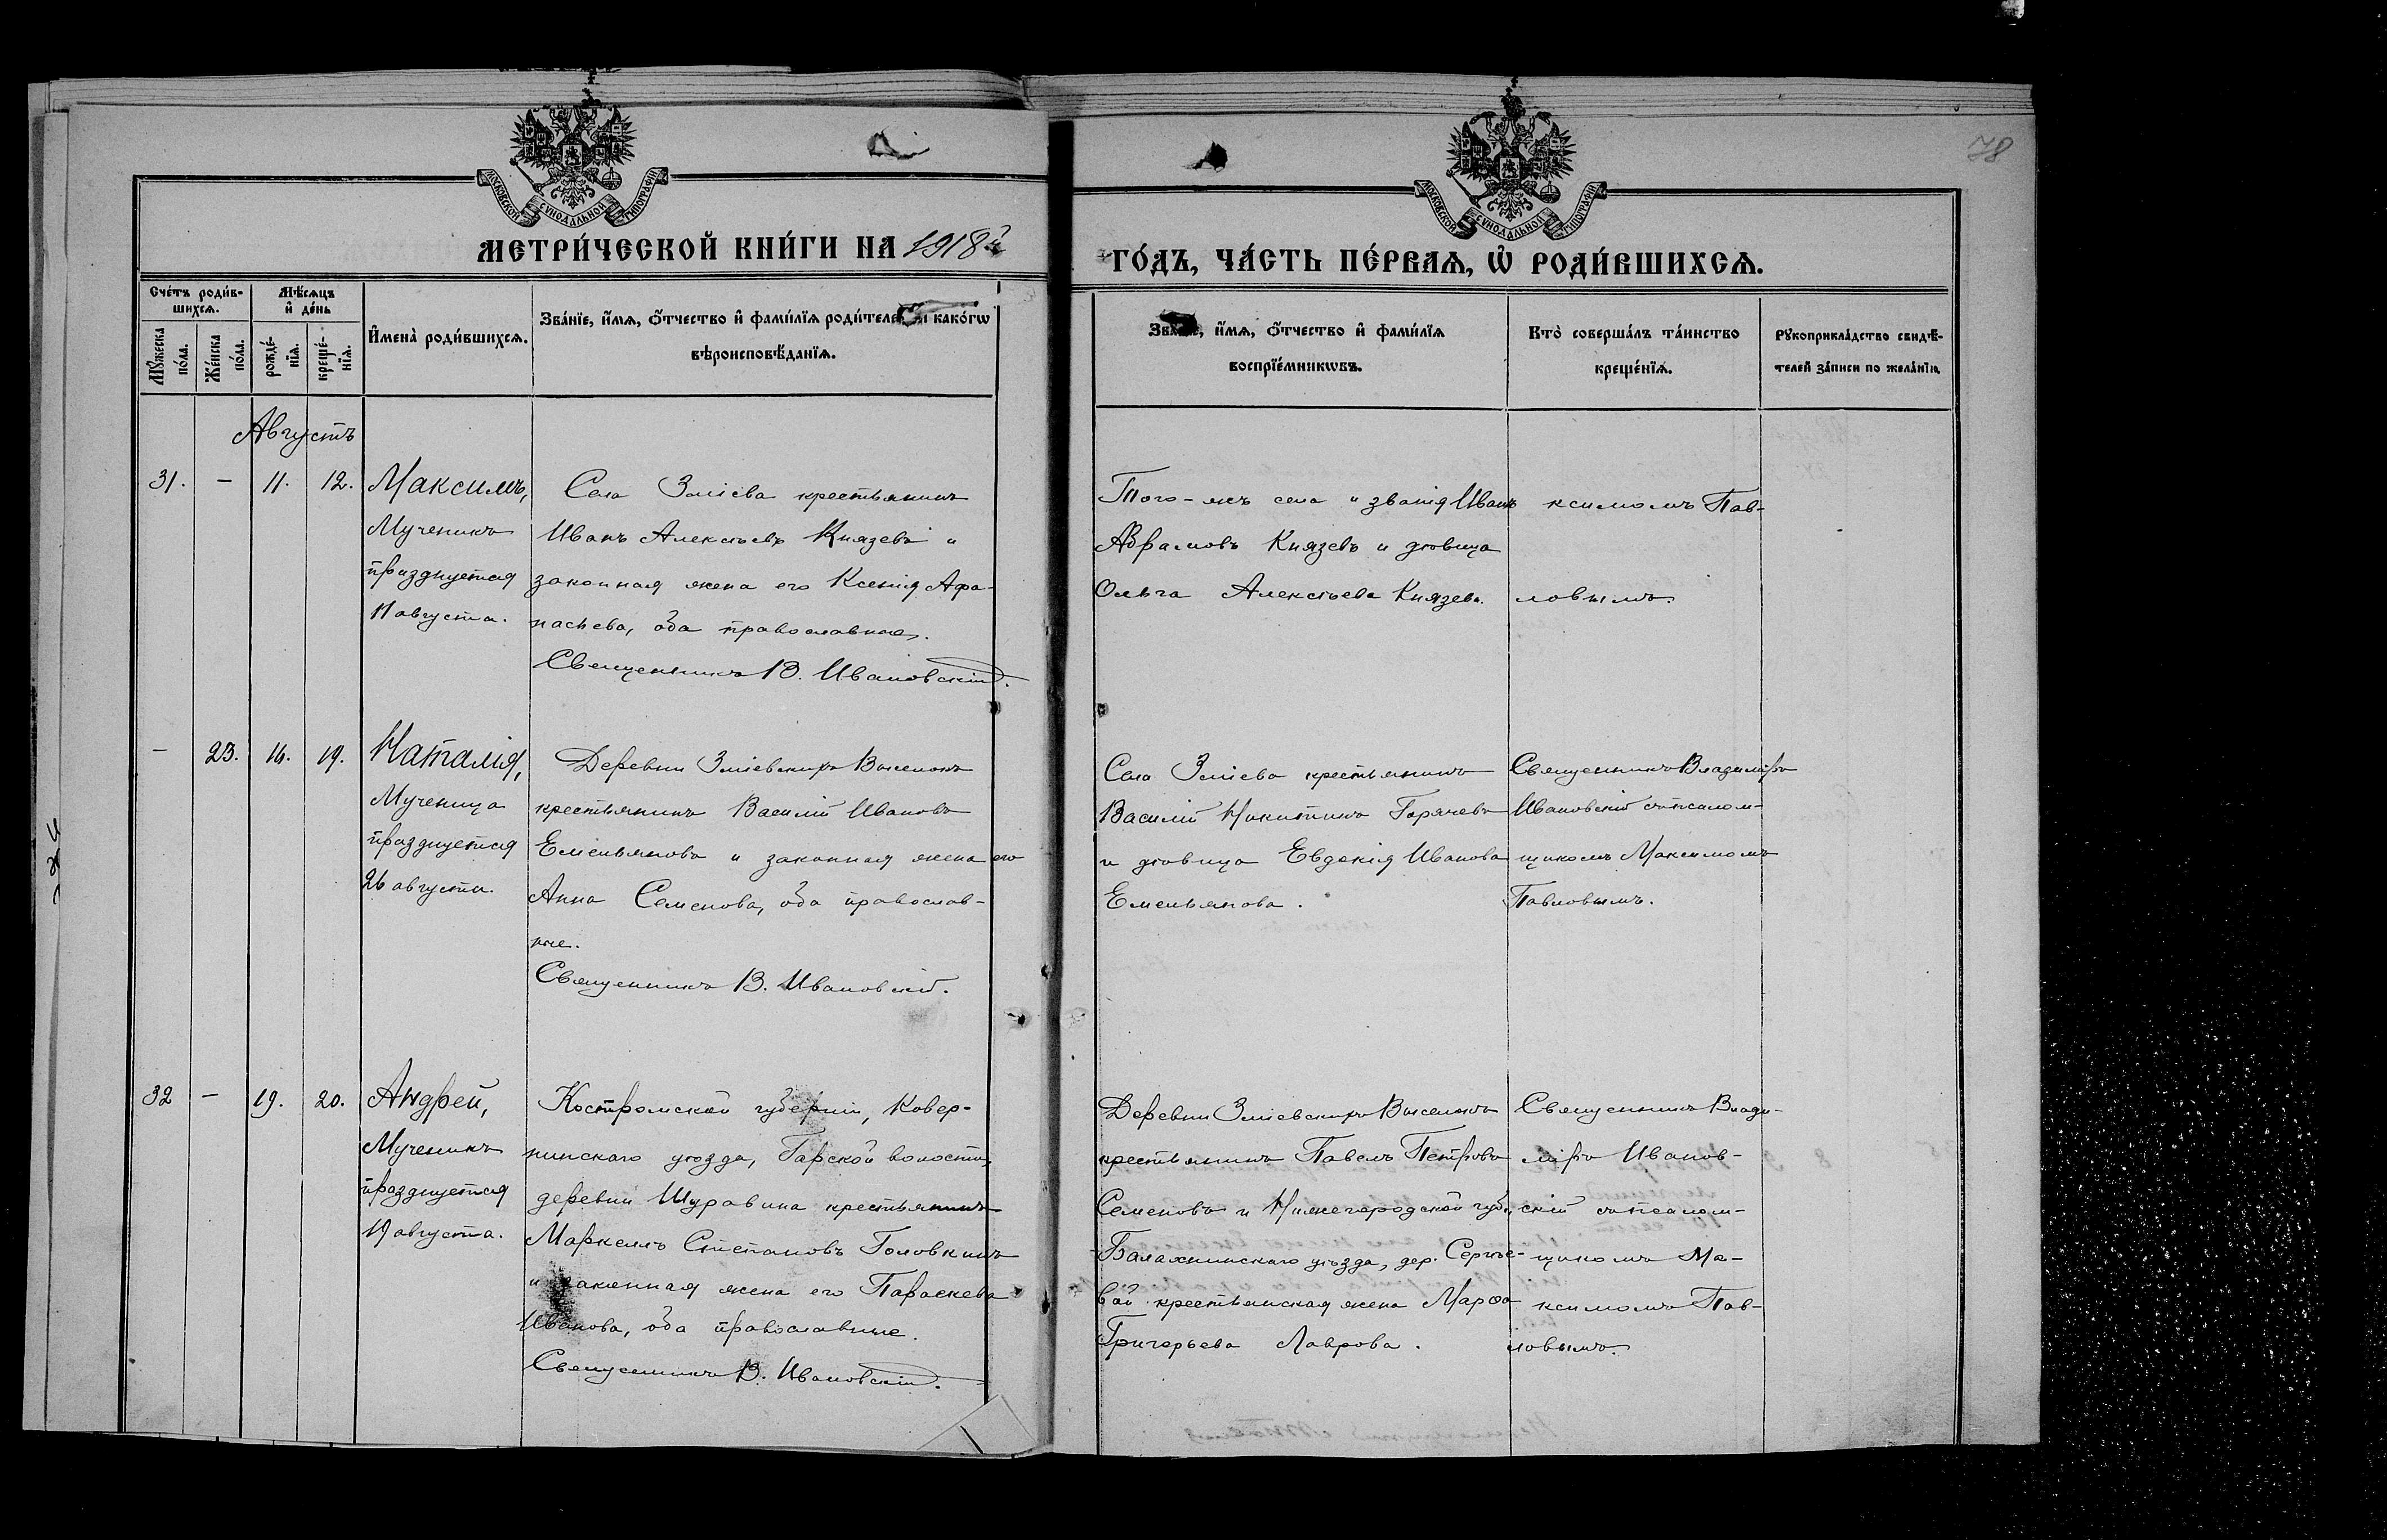 78
МОСКОВСКОЙ СѴНОДАЛЬНОЙ ТИПОГРАФІИ
МОСКОВСКОЙ СѴНОДАЛЬНОЙ ТИПОГРАФІИ
МЕТРИ́ЧЕСКОЙ КНИ́ГИ НА 1918й
ГО́ДЪ, ЧА́СТЬ ПЕ́РВАѦ, Ѡ҆ РОДИ́ВШИХСѦ.
Сче́тъ роди́в-
шихсѧ.
Мꙋ́жеска
по́ла.
Же́нска
по́ла.
Мѣ́сѧцъ
и҆ де́нь
рожде́-
нїѧ.
креще́-
нїѧ.
И҆мена̀ роди́вшихсѧ.
Зва́нїе, и҆́мѧ, ѻ҆́тчество и҆ фами́лїѧ роди́телей, и како́гѡ
вѣроисповѣ́данїѧ.
Зва́нїе, и҆́мѧ, ѻ҆́тчество и҆ фами́лїѧ
воспрїе́мникѡвъ.
Кто̀ соверша́лъ та́инство
креще́нїѧ.
Рꙋкоприкла́дство свидѣ́-
телей за́писи по жела́нїю.
Августъ
31. – 11. 12.
Максимъ,
Мученикъ
празднуется
11 августа.
Села Зміева крестьянинъ
Иванъ Алексѣевъ Князевъ и
законная жена его Ксенія Афа-
насьева, оба православные.
Священникъ В. Ивановскій.
Того-жъ села и званія Иванъ
Абрамовъ Князевъ и дѣвица
Ольга Алексѣева Князева.
ксимомъ Пав-
ловымъ.
– 23. 16. 19.
Наталія,
Мученица
празднуется
26 августа.
Деревни Зміевскихъ Выселокъ
крестьянинъ Василій Ивановъ
Емельяновъ и законная жена его
Анна Семенова, оба православ-
ные.
Священникъ В. Ивановскій.
Села Зміева крестьянинъ
Василій Никитинъ Горячевъ
и дѣвица Евдокія Иванова
Емельянова.
Священникъ Владиміръ
Ивановскій съ псалом-
щикомъ Максимомъ
Павловымъ.
32 – 19. 20.
Андрей,
Мученикъ
празднуется
19 августа.
Костромской губерніи, Ковер-
нинскаго уѣзда, Гарской волости,
деревни Шуравина крестьянинъ
Маркеллъ Степановъ Головкинъ
и законная жена его Параскева
Иванова, оба православные.
Священникъ В. Ивановскій.
Деревни Зміевскихъ Выселокъ
крестьянинъ Павелъ Петровъ
Семеновъ и Нижегородской губ.,
Балахнинскаго уѣзда, дер. Сергѣе-
вой крестьянская жена Марѳа
Григорьева Лаврова.
Священникъ Влади-
міръ Иванов-
скій съ псалом-
щикомъ Ма-
ксимомъ Пав-
ловымъ.